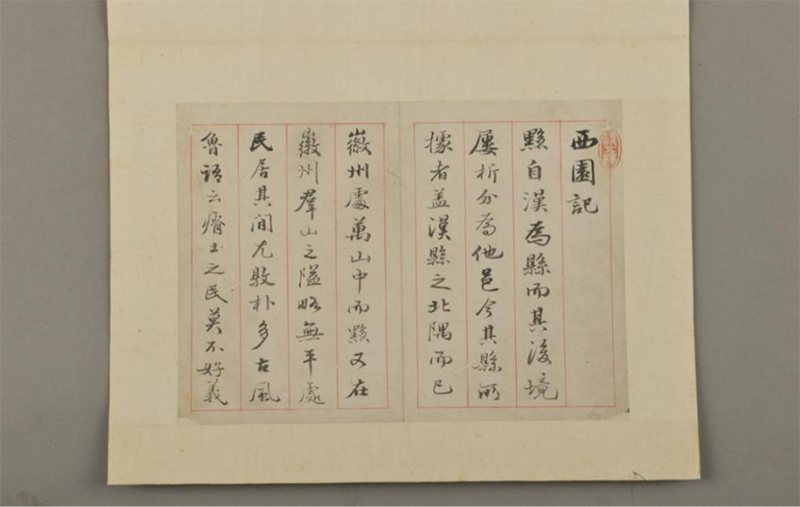 西園記
黟自漢為縣而其後境
屢析分為他邑今其縣所
據者蓋漢縣之北隅而已
徽州處萬山中而黟又在
徽州羣山之隘略無平處
民居其間尤敦朴多古風
魯語云瘠土之民莫不好義